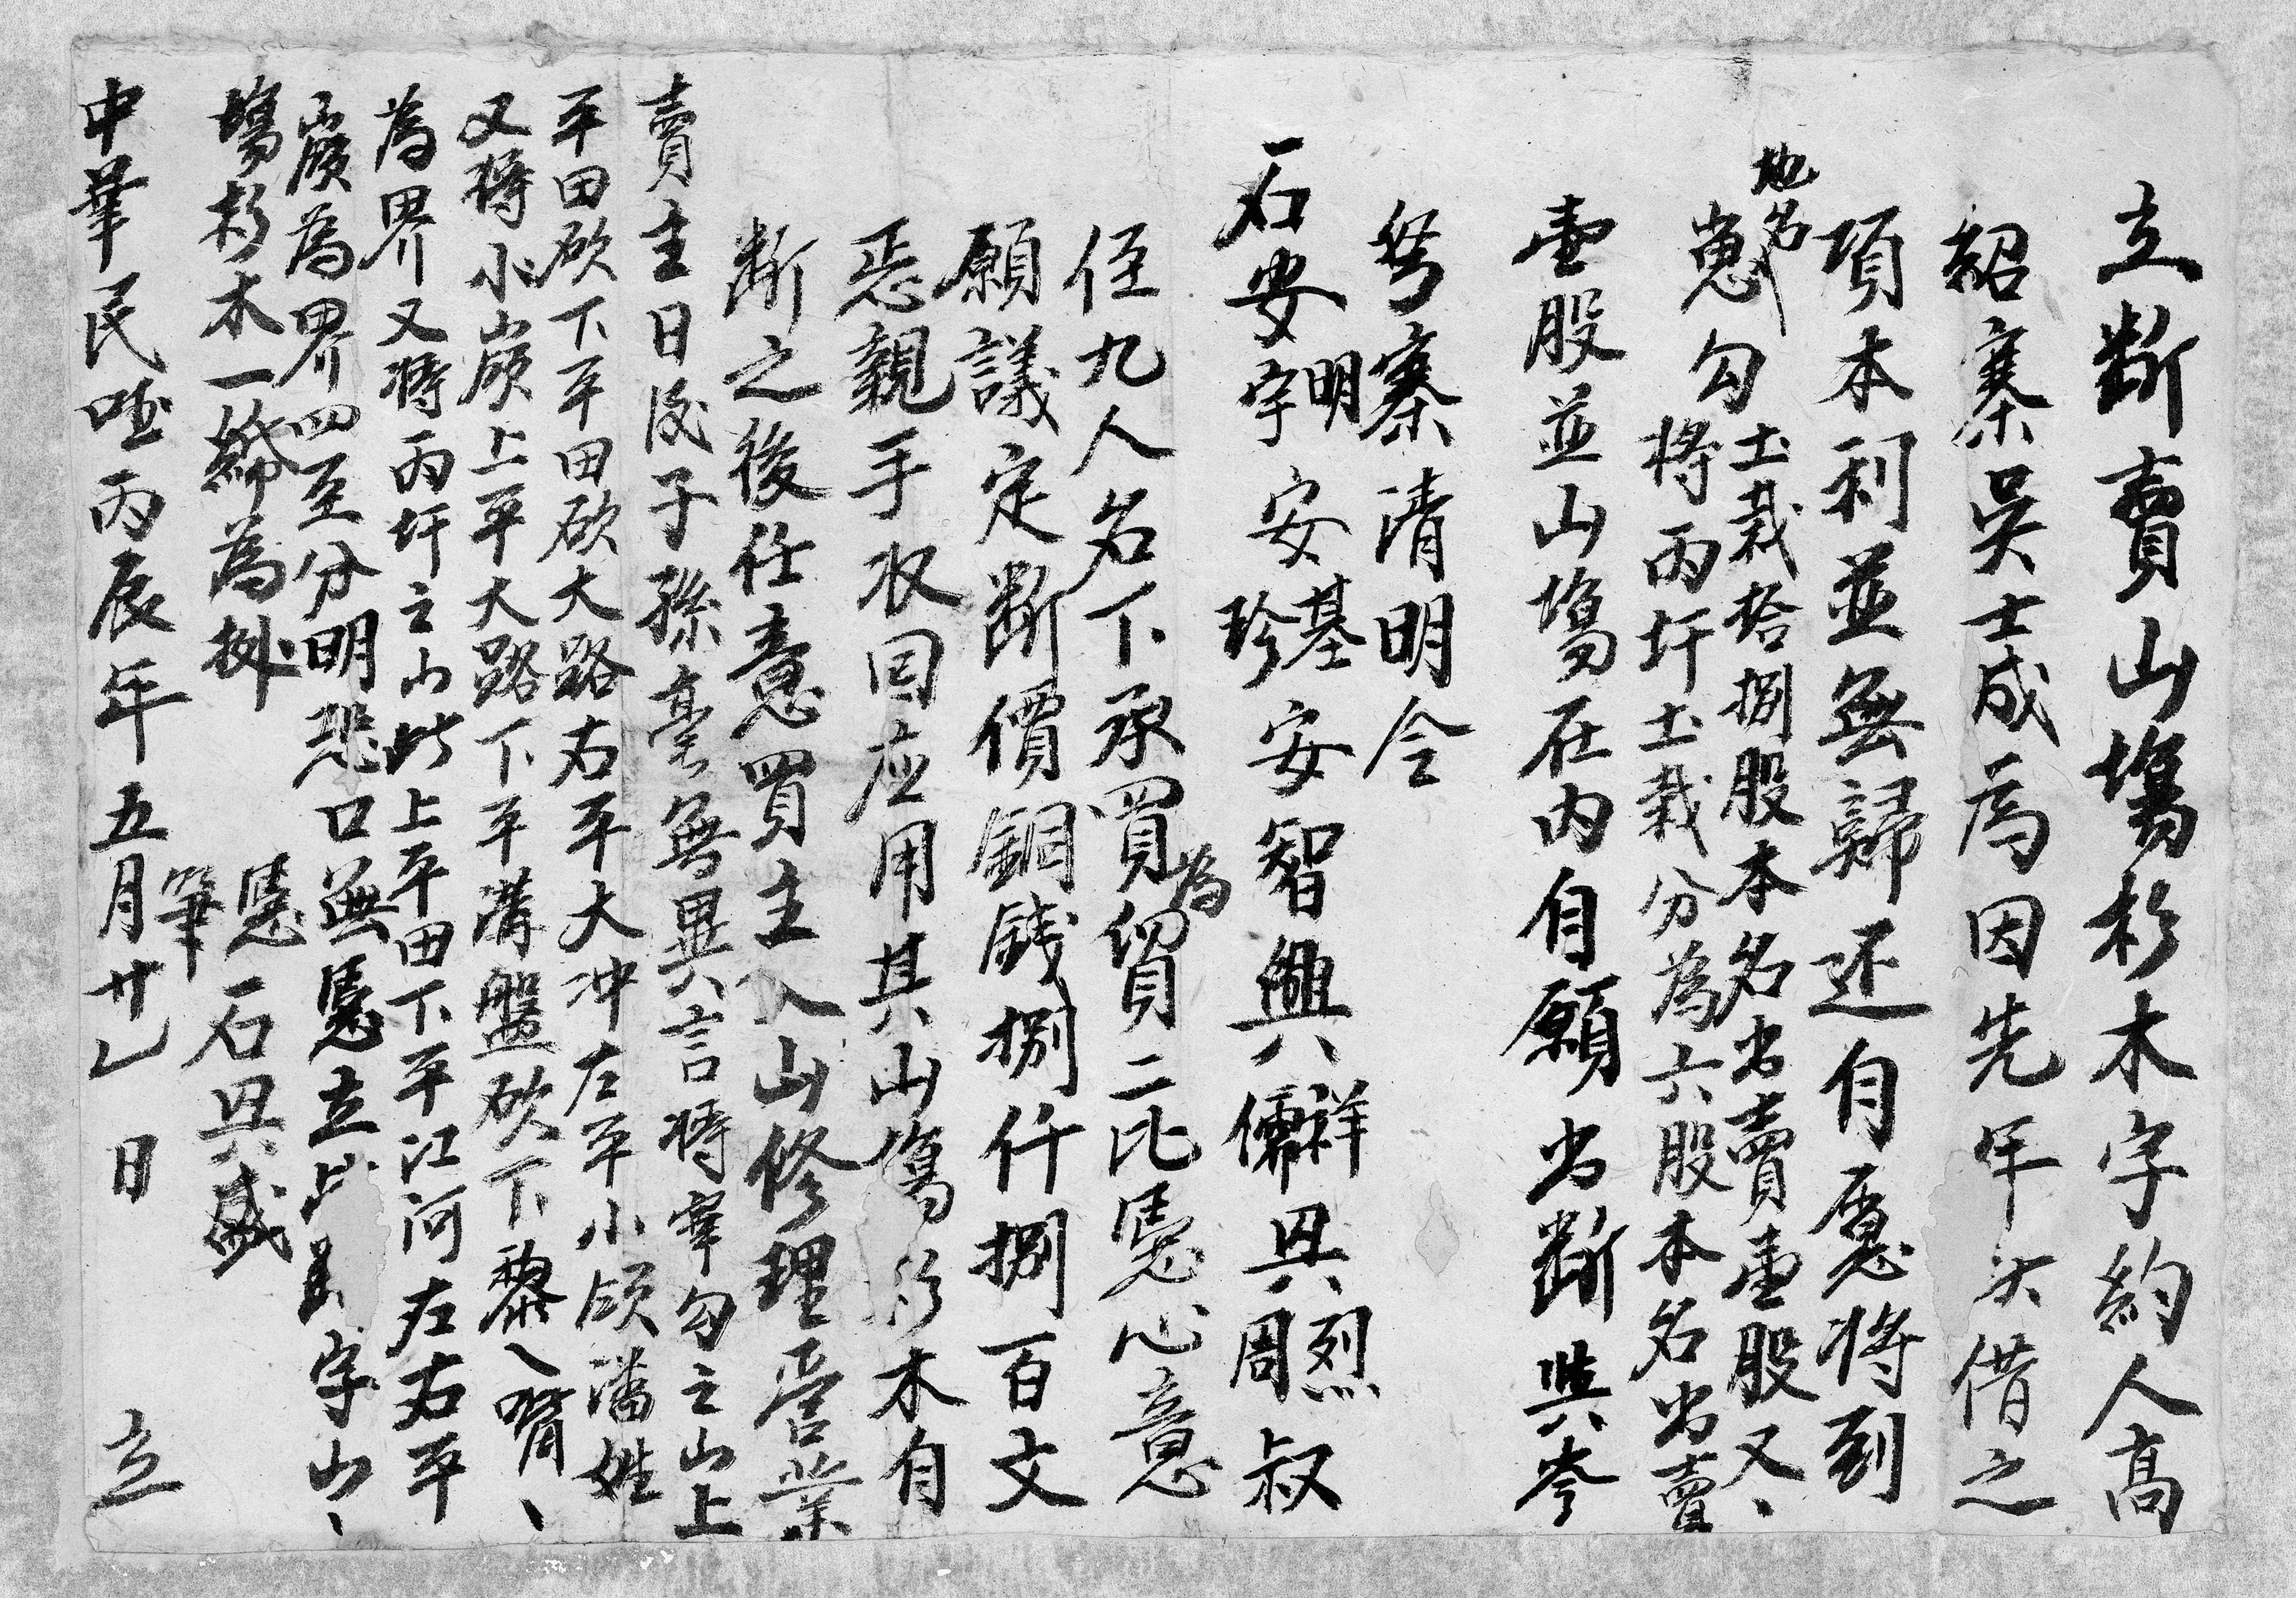 立斷賣山塲杉木字約人高
紹寨吳士成為因先年欠借之
項本利並無歸还自愿将到
地名
崽勾土栽拾捌股本名出賣壹股又、
将丙圩土栽分為六股本名出賣
壹股並山塲在内自願出斷與岑
努寨清明令
石安明宇安基珍安智興祥儒興烈周叔
侄九人名下承買為貿二比憑心意
願議定斷價銅錢捌仟捌百文
恁親手收回应用其山塲杉木自
斷之後任意買主入山修理营業
賣主日後子孫毫無異言将宰勾之山上
平田砍下平田砍大路右平大冲左平小領潘姓
又将小嶺上平大路下平溝盤砍下黎入胥、
為界又将丙圩之山此上平田下平江河左右平
嶺為界四至分明恐口無憑立此字山、
塲杉木一紙為㨿
憑筆石興盛
中華民國丙辰年五月廿乚日立